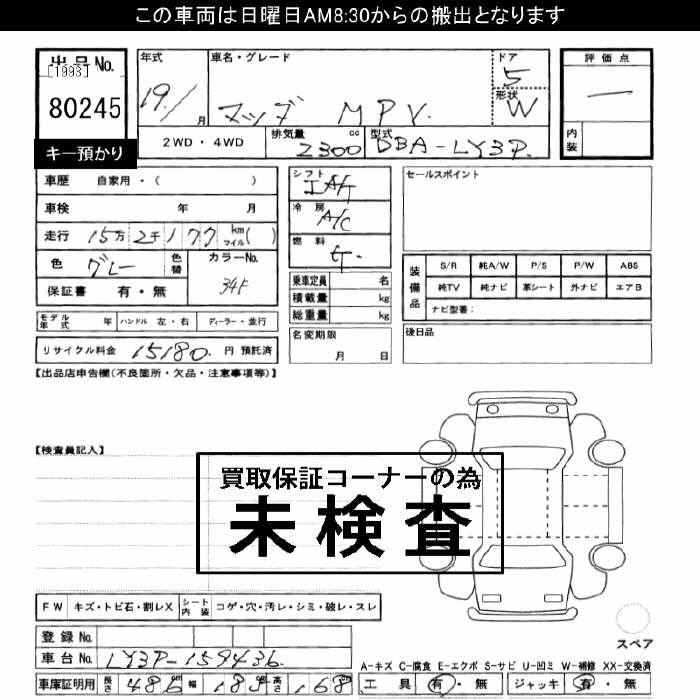 この車両は日曜日AM8:30からの搬出となります
出品No.
[1993]
80245
キー預かり
年式 19/1月
車名・グレード マツダ MPV
ドア 5
形状 W
2WD・4WD
排気量 2300 cc
型式 DBA-LY3P
評価点
内装
車歴 自家用・( )
車検 年 月
走行 15万2千177 km マイル( )
色 グレー 色替 カラーNo. 34F
保証書 有・無
シフト IAT
冷房 A/C
燃料
乗車定員 名
積載量 kg
総重量 kg
セールスポイント
装備品
S/R 純A/W P/S P/W ABS
純TV 純ナビ 革シート 外ナビ エアB
ナビ型番:
モデル年式 年 ハンドル 左・右 ディーラー・並行
名変期限 月 日
後日品
リサイクル料金 15180 円 預託済
【出品店申告欄(不良箇所・欠品・注意事項等)】
【検査員記入】
買取保証コーナーの為
未検査
FW キズ・トビ石・割レX シート内装 コゲ・穴・汚レ・シミ・破レ・スレ
スペア
登録No.
車台No. LY3P-159436
A-キズ C-腐食 E-エクボ S-サビ U-凹ミ W-補修 XX-交換済
車庫証明用 長さ 486 幅 185 高さ 168
工具 有・無 ジャッキ 有・無